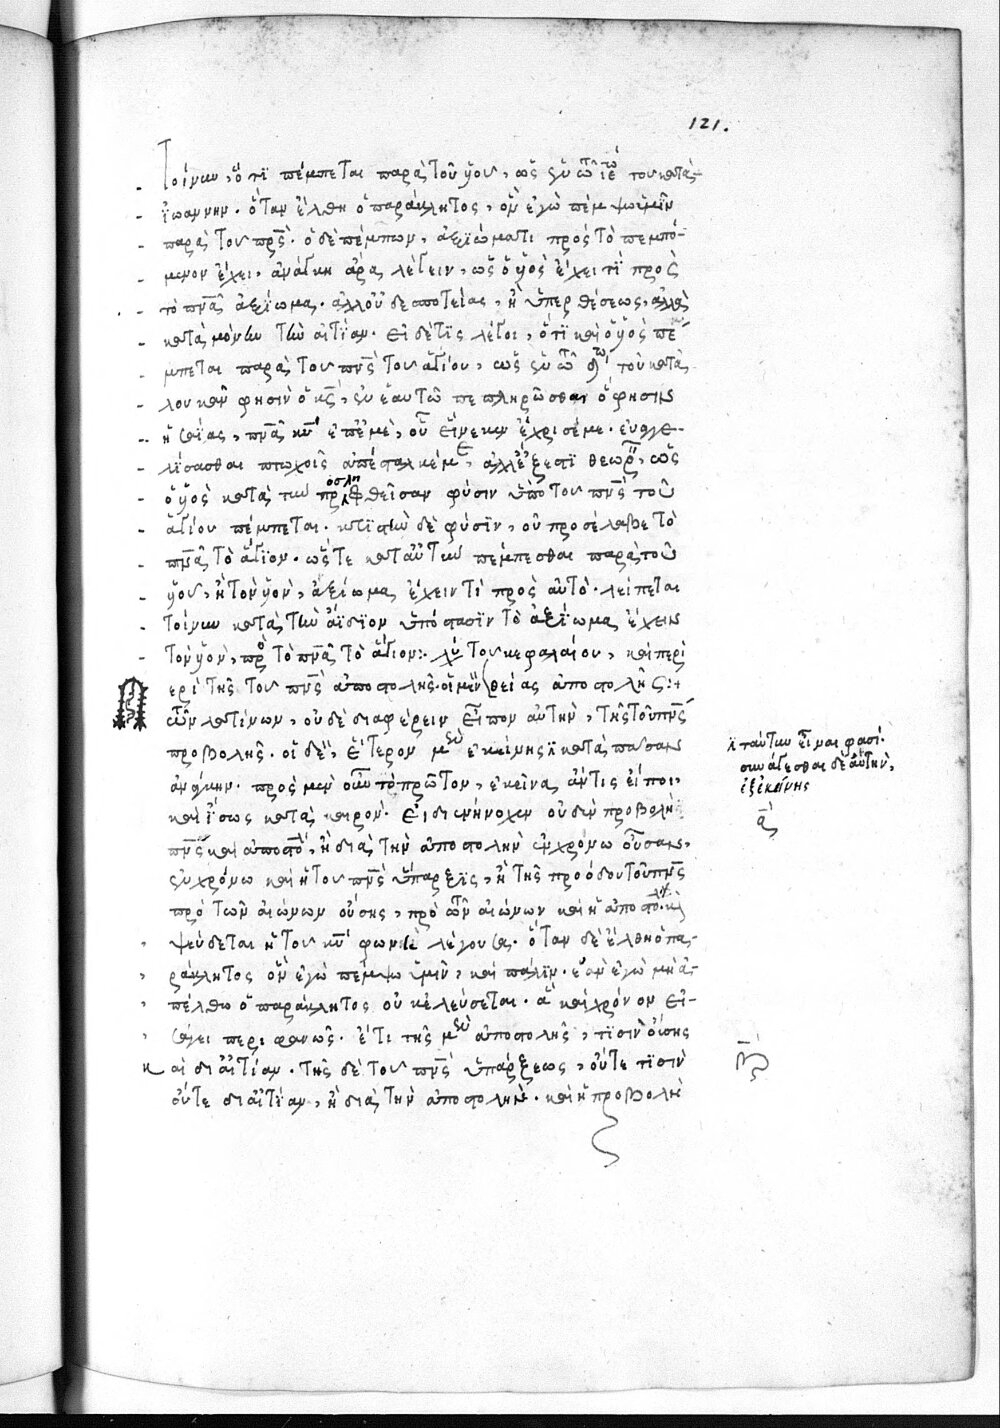 121.
Τοίνυν, ὅτι πέμπεται παρὰ τοῦ υἱοῦ, ὡς ἐν τῷ ιε τοῦ κατὰ
ἰωάννην. ὅταν ἔλθη ὁ παράκλητος, ὃν ἐγὼ πέμψω ὑμῖν
παρὰ τοῦ πρς. ὁ δὲ πέμπων, ἀξιώματι πρὸς τὸ πεμπό-
μενον ἔχει, ἀνάγκη ἄρα λέγειν, ὡς ὁ υἱὸς ἔχει τι πρὸς
τὸ πνα ἀξίωμα. ἀλλ' οὐ δεσποτείας, ἢ ὑπερθέσεως, ἀλλὰ
κατὰ μόνην τὴν αἰτίαν. εἰ δέ τις λέγοι, ὅτι καὶ ὁ υἱὸς πέ-
μπεται παρὰ τοῦ πνς τοῦ ἁγίου, ὡς ἐν τῷ τοῦ κατὰ
λουκᾶν φησὶν ὁ κς, ἐν ἑαυτῷ πεπληρῶσθαι ὅ φησιν
ἡσαΐας, πνα κυ ἐπ' ἐμὲ, οὗ εἵνεκεν ἔχρισέ με. εὐαγγε-
λίσασθαι πτωχοῖς ἀπέσταλκέ με, ἀλλ' ἔξεστι θεωρεῖν, ὡς
ὁ υἱὸς κατὰ τὴν προσληφθεῖσαν φύσιν ὑπὸ τοῦ πνς τοῦ
ἁγίου πέμπεται. κτιστὴν δὲ φύσιν, οὐ προσέλαβε τὸ
πνα τὸ ἅγιον. ὥστε κατ' αὐτὴν πέμπεσθαι παρὰ τοῦ
υἱοῦ, ἢ τὸν υἱὸν, ἀξίωμα ἔχειν τι πρὸς αὐτό. λείπεται
τοίνυν κατὰ τὴν ἀΐδιον ὑπόστασιν τὸ ἀξίωμα ἔχειν
τὸν υἱὸν, πρὸς τὸ πνα τὸ ἅγιον:
ερὶ τῆς τοῦ πνς ἀποστολῆς. οἱ μὲν
τῶν λατίνων, οὐδὲ διαφέρειν εἶπον αὐτὴν, τῆς τοῦ πνς
προβολῆς. οἱ δὲ, ἕτερον μὲν ἐκείνης κατὰ πᾶσαν
ἀνάγκην. πρὸς μὲν οὖν τὸ πρῶτον, ἐκεῖνα ἄν τις εἴποι,
καὶ ἴσως κατὰ καιρόν. εἰ διενήνοχεν οὐδὲν προβολὴ
πνς καὶ ἀποστολὴ, ἢ διὰ τὴν ἀποστολὴν ἐν χρόνω οὖσαν,
ἐν χρόνω καὶ ἡ τοῦ πνς ὕπαρξις, ἢ τῆς προόδου τοῦ πνς
πρὸ τῶν αἰώνων οὔσης, πρὸ τῶν αἰώνων καὶ ἡ ἀποστολὴ. καὶ
ψεύδεται ἡ τοῦ κυ φωνὴ λέγουσα. ὅταν δὲ ἔλθη ὁ πα-
ράκλητος ὃν ἐγὼ πέμψω ὑμῖν, καὶ πάλιν. ἐὰν ἐγὼ μὴ ἀ-
πέλθω ὁ παράκλητος οὐκ ἐλεύσεται. ἃ καὶ χρόνον εἰ-
σάγει περιφανῶς. ἔτι τῆς μὲν ἀποστολῆς, τισὶν οἴσης
καὶ δι' αἰτίαν. τῆς δὲ τοῦ πνς ὑπάρξεως, οὔτε τισὶν
οὔτε δι' αἰτίαν, ἢ διὰ τὴν ἀποστολὴν. καὶ ἡ προβολὴ
ταύτην εἶναι φασί.
συνάγεσθαι δὲ αὐτὴν,
ἐξ ἐκείνης
α
β